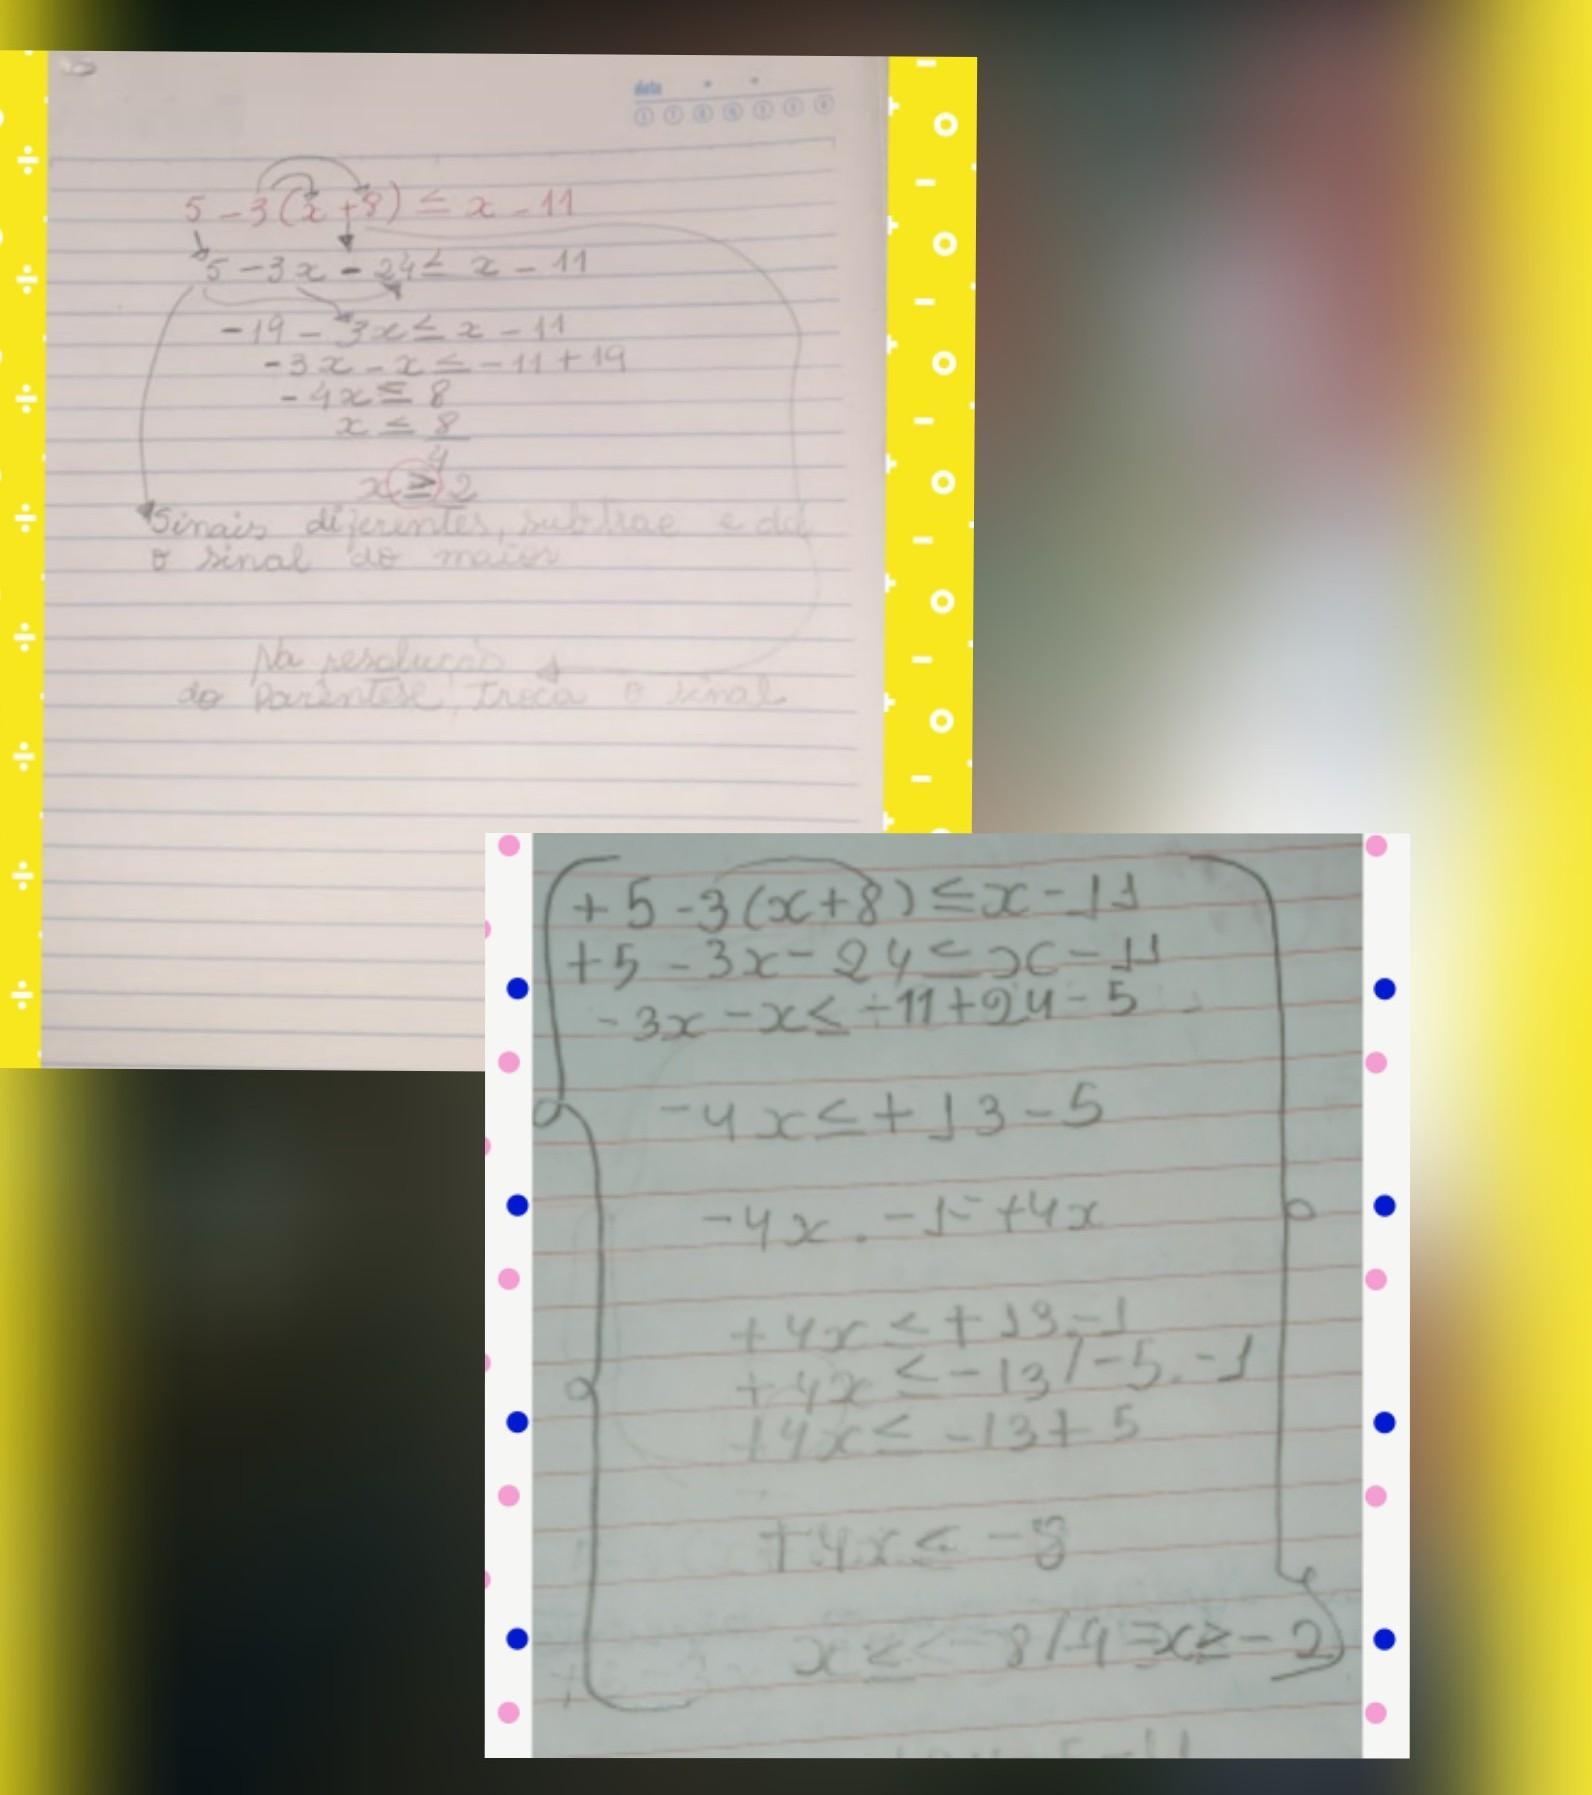 data
5 - 3(x + 8) ≤ x - 11
5 - 3x - 24 ≤ x - 11
-19 - 3x ≤ x - 11
-3x - x ≤ -11 + 19
-4x ≤ 8
x ≤ 8
4
x ≥ 2
Sinais diferentes, subtrae e dá
o sinal do maior
Na resolução
do parêntese, troca o sinal
+5 -3(x+8) ≤ x - 11
+5 - 3x - 24 ≤ x - 11
-3x - x ≤ -11 + 24 - 5
-4x ≤ +13 - 5
-4x . -1 = +4x
+4x ≤ +13.-1
+4x ≤ -13 / -5.-1
+4x ≤ -13 + 5
+4x ≤ -8
x ≤ - 8/4 = x ≥ - 2